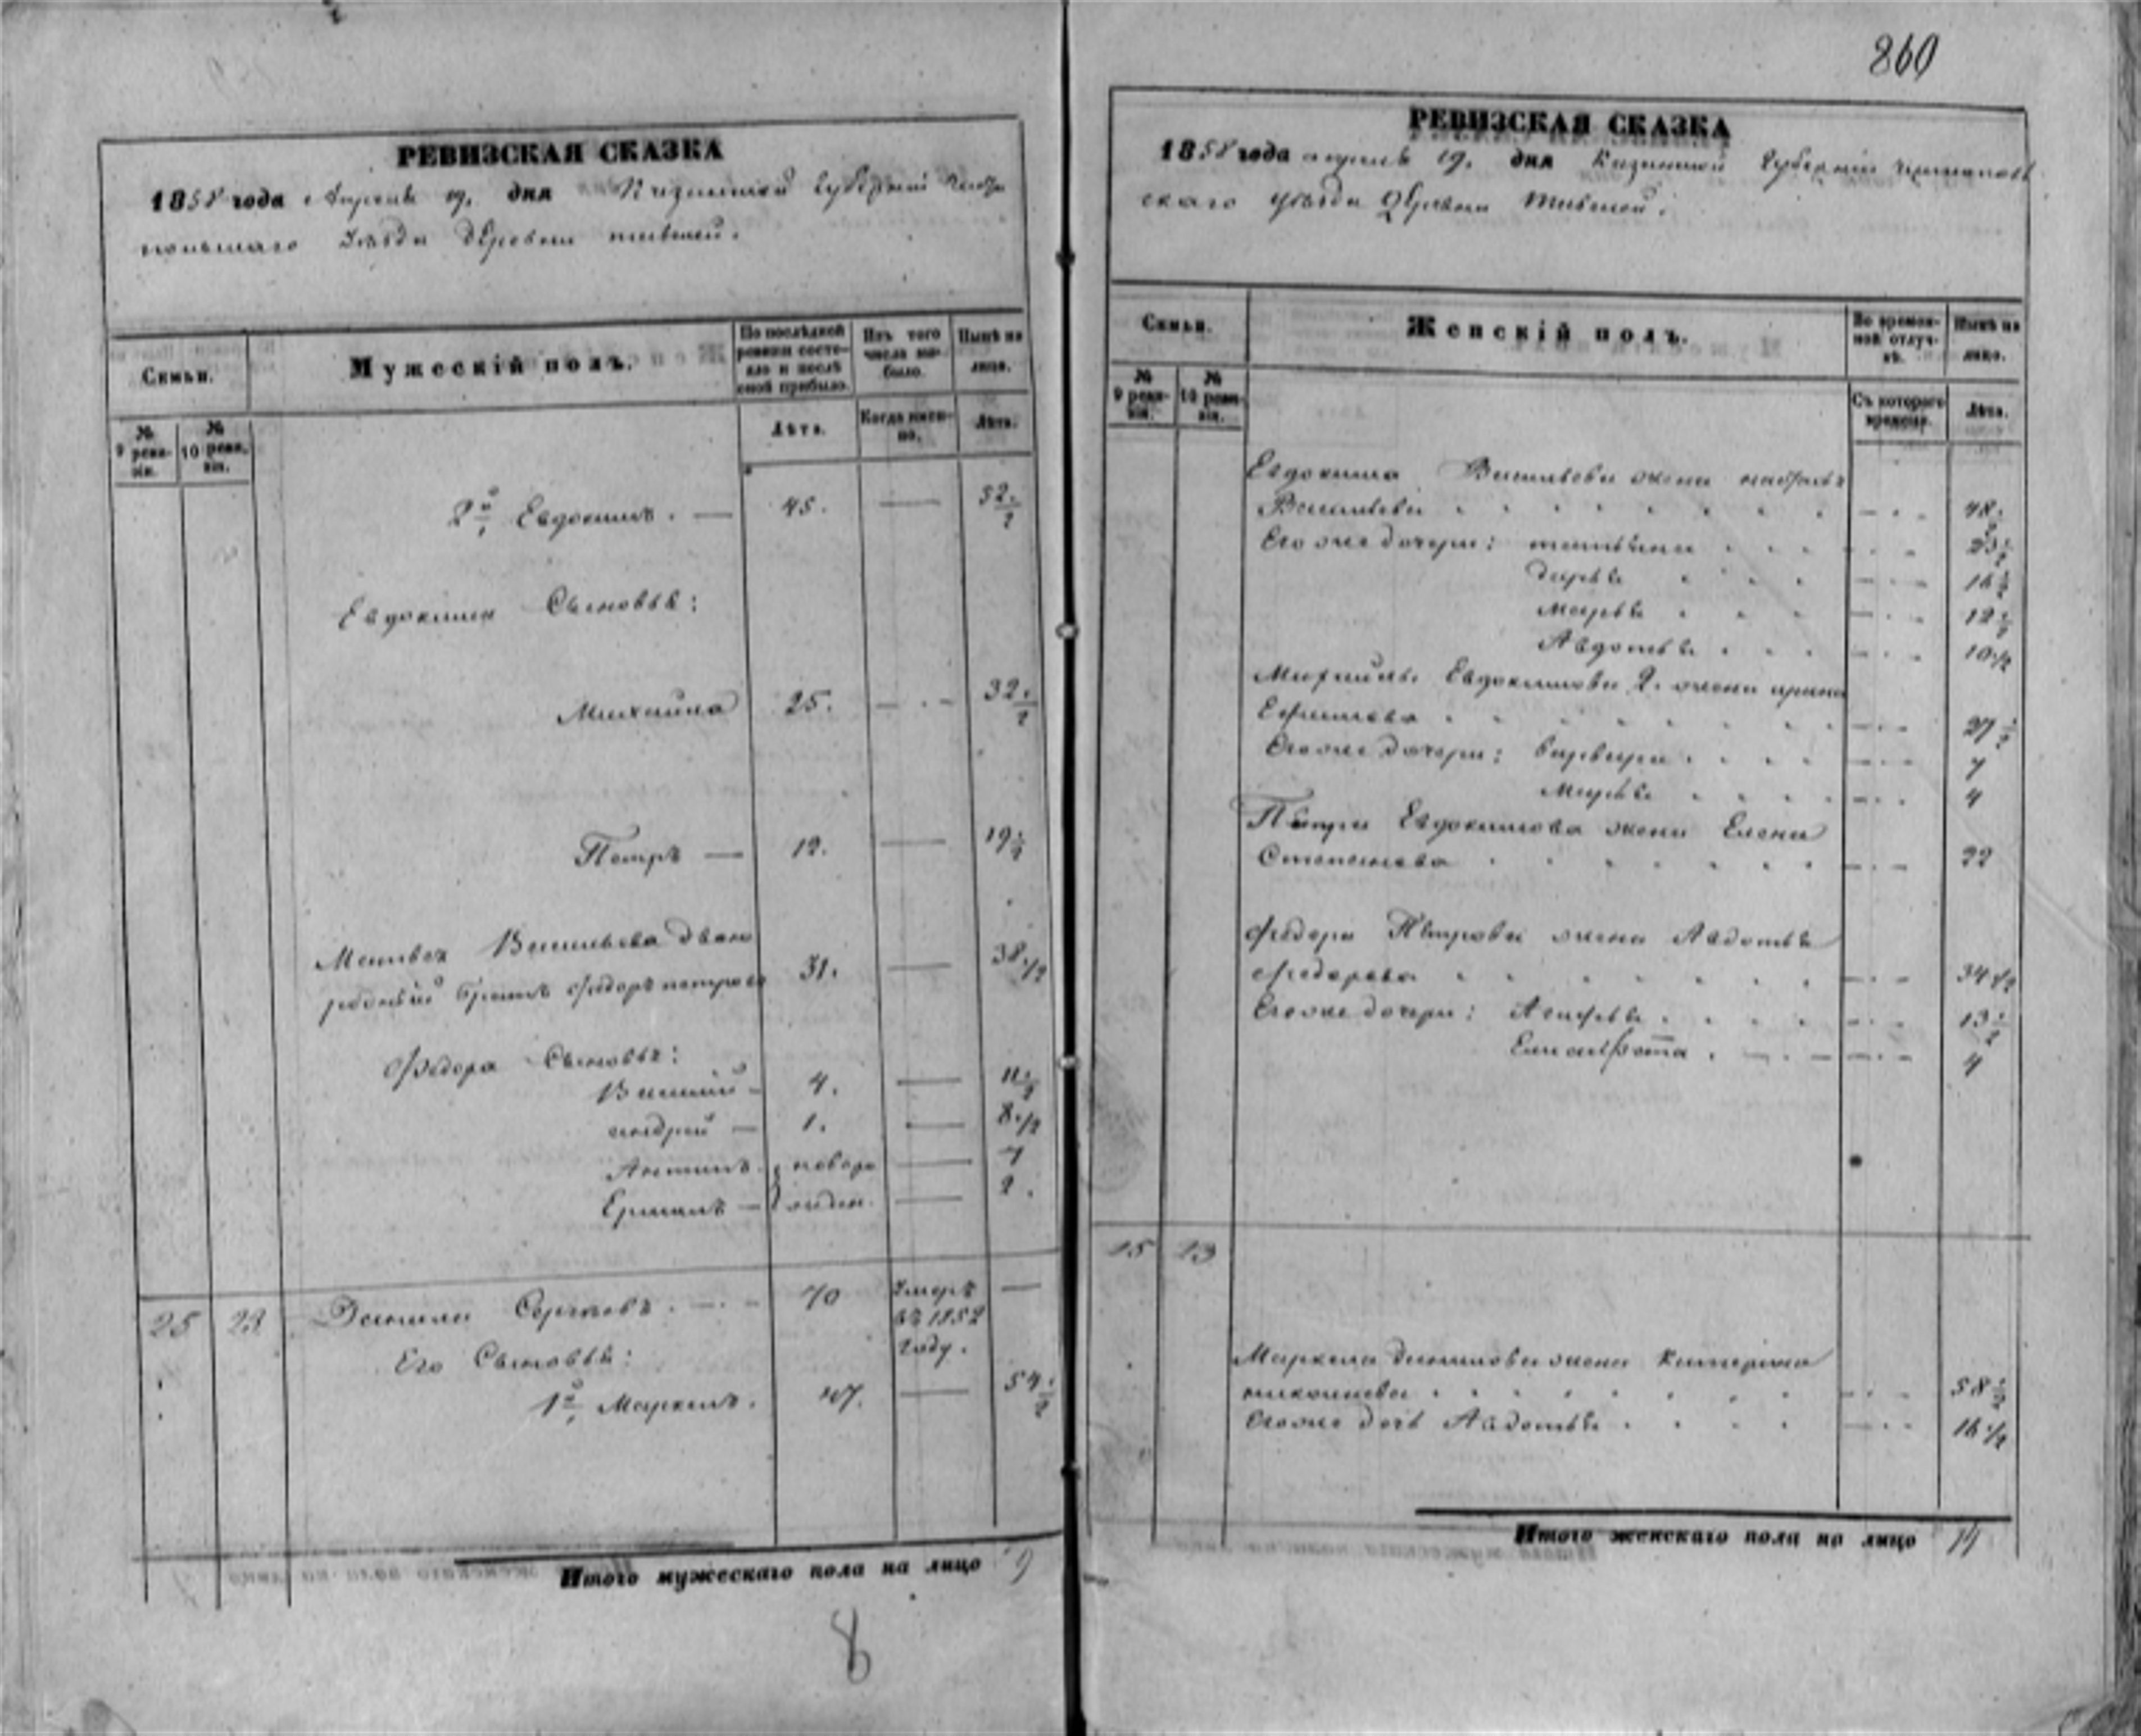 860
РЕВИЗСКАЯ СКАЗКА
1858 года Апреля 19. дня Казанской Губернии
Уезда деревни
Семьи.
Мужескій полъ.
По послѣдней ревизіи состояло и послѣ оной прибыло.
Изъ того числа выбыло.
Нынѣ на лицо.
№ 9 ревизіи.
№ 10 ревизіи.
Лѣта.
Когда именно.
Лѣта.
2й Евдокимъ. — 45. — 52 1/2
Евдокима Сыновья:
Михайла 25. — 32 1/2
Петръ — 12. — 19 1/2
Матвея Васильева двою
родный братъ Федоръ Петровъ 31. — 38 1/2
Федора Сыновья:
Василий — 4. — 11 1/2
Андрей — 1. — 8 1/2
Антипъ новоро — 7
— жден. — 2.
25 23 Данила 70 Умеръ —
въ 1852
году.
Его Сыновья:
1й Маркелъ. 47. — 54 1/2
Итого мужескаго пола на лицо 9
8
РЕВИЗСКАЯ СКАЗКА
1858 года апреля 19. дня Казанской Губернии
скаго уезда Деревни
Семьи.
Женскій полъ.
Во временной отлучкѣ.
Нынѣ на лицо.
№ 9 ревизіи.
№ 10 ревизіи.
Съ котораго времени.
Лѣта.
Евдокима Васильева жена
Васильева 48.
Его же дочери: Татьяна
Дарья 16 1/2
Марья 12 1/2
Авдотья 10 1/2
Михайлы Евдокимова 2. жена Ирина
Ефимова 27 1/2
Его же дочери: Варвара 7
Марья 4
Петра Евдокимова жена Елена
Степанова 22
Федора Петрова жена Авдотья
Федорова 34 1/2
Его же дочери: 13 1/2
Елисавета 4
25 23
Маркела Данилова жена Катерина
58 1/2
Его же дочь Авдотья 16 1/2
Итого женскаго пола на лицо 14